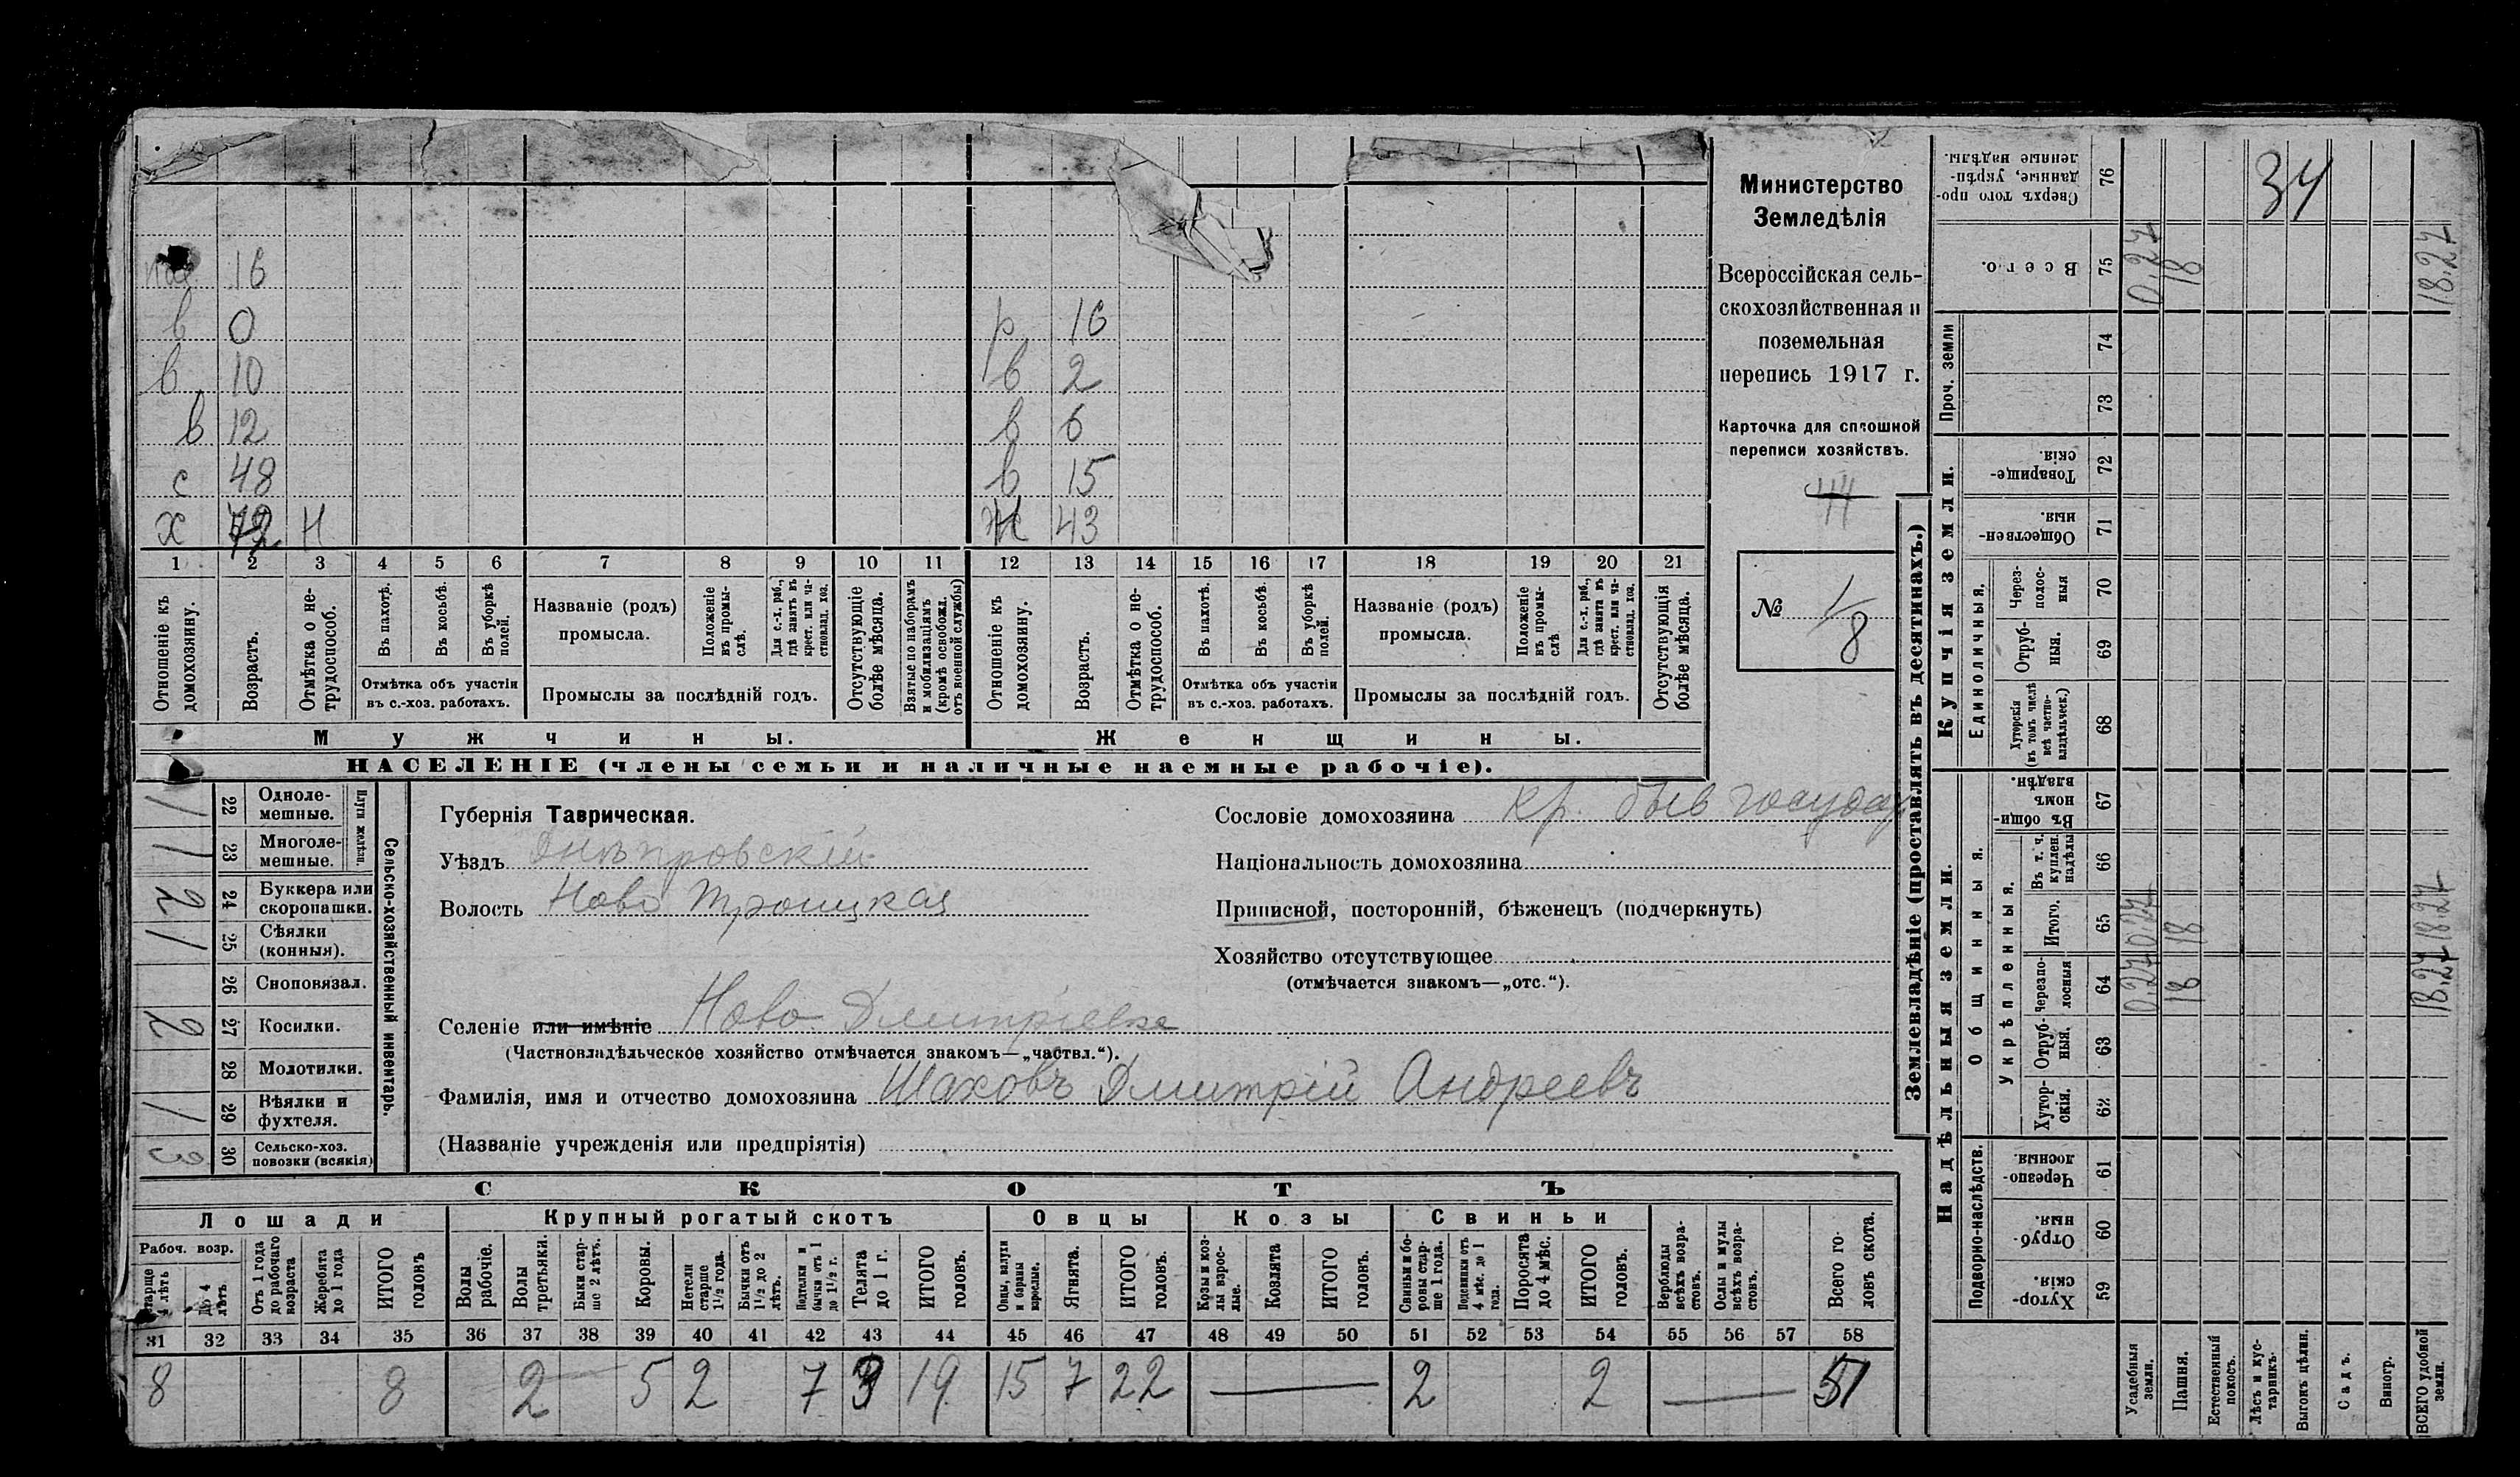 Министерство
Земледѣлія
Всероссійская сель-
скохозяйственная и
поземельная
перепись 1917 г.
Карточка для сплошной
переписи хозяйствъ.
44
№ 1/8
16
в 0
в 10
в 12
с 48
х 72 Н
р 16
в 2
в 6
в 15
Ж 43
1 2 3 4 5 6 7 8 9 10 11 12 13 14 15 16 17 18 19 20 21
Отношеніе къ домохозяину.
Возрастъ.
Отмѣтка о не-трудоспособ.
Въ пахотѣ.
Въ косьбѣ.
Въ уборкѣ полей.
Отмѣтка объ участіи
въ с.-хоз. работахъ.
Названіе (родъ)
промысла.
Положеніе въ промы-слѣ.
Для с.-х. раб., гдѣ занятъ въ крест. или ча-стновлад. хоз.
Промыслы за послѣдній годъ.
Отсутствующіе болѣе мѣсяца.
Взятые по наборамъ и мобилизаціямъ (кромѣ освобожд. отъ военной службы)
Отношеніе къ домохозяину.
Возрастъ.
Отмѣтка о не-трудоспособ.
Въ пахотѣ.
Въ косьбѣ.
Въ уборкѣ полей.
Отмѣтка объ участіи
въ с.-хоз. работахъ.
Названіе (родъ)
промысла.
Положеніе въ промы-слѣ
Для с.-х. раб., гдѣ занята въ крест. или ча-стновлад. хоз.
Промыслы за послѣдній годъ.
Отсутствующія болѣе мѣсяца.
Мужчины.
Женщины.
НАСЕЛЕНІЕ (члены семьи и наличные наемные рабочіе).
Сельско-хозяйственный инвентарь.
Плуги желѣзн.
1 22 Одноле-мешные.
1 23 Многоле-мешные.
2 24 Буккера или скоропашки.
1 25 Сѣялки (конныя).
26 Сноповязал.
2 27 Косилки.
28 Молотилки.
1 29 Вѣялки и фухтеля.
3 30 Сельско-хоз. повозки (всякія)
Губернія Таврическая.
Уѣздъ Днѣпровскій
Волость Ново Троицкая
Селеніе или имѣніе Ново Дмитріевка
(Частновладѣльческое хозяйство отмѣчается знакомъ—„частвл.“).
Фамилія, имя и отчество домохозяина Шаховъ Дмитрій Андреевъ
(Названіе учрежденія или предпріятія)
Сословіе домохозяина кр. быв государ
Національность домохозяина
Приписной, посторонній, бѣженецъ (подчеркнуть)
Хозяйство отсутствующее
(отмѣчается знакомъ—„отс.“).
СКОТЪ
Лошади
Крупный рогатый скотъ
Овцы
Козы
Свиньи
Рабоч. возр.
старше 4 лѣтъ
до 4 лѣтъ.
Отъ 1 года до рабочаго возраста
Жеребята до 1 года
ИТОГО головъ
Волы рабочіе.
Волы третьяки.
Быки стар-ше 2 лѣтъ.
Коровы.
Нетели старше 1½ года.
Бычки отъ 1½ до 2 лѣтъ.
Подтелки и бычки отъ 1 до 1½ г.
Телята до 1 г.
ИТОГО головъ.
Овцы, валухи и бараны взрослые.
Ягнята.
ИТОГО головъ.
Козы и коз-лы взрос-лые.
Козлята
ИТОГО головъ.
Свиньи и бо-ровы стар-ше 1 года.
Подсвинки отъ 4 мѣс. до 1 года.
Поросята до 4 мѣс.
ИТОГО головъ.
Верблюды всѣхъ возра-стовъ.
Ослы и мулы всѣхъ возра-стовъ.
Всего го-ловъ скота.
31 32 33 34 35 36 37 38 39 40 41 42 43 44 45 46 47 48 49 50 51 52 53 54 55 56 57 58
8 8 2 5 2 7 3 19 15 7 22 — 2 2 — 51
Землевладѣніе (проставлять въ десятинахъ.)
Надѣльныя земли.
Купчія земли.
Проч. земли
Подворно-наслѣдств.
Общинныя.
Укрѣпленныя.
Единоличныя.
Сверхъ того про-данные, укрѣп-ленные надѣлы. 76
34
Всего. 75 0,27 18 18.27
74
73
Товарище-скія. 72
Обществен-ныя. 71
Через-полос-ныя 70
Отруб-ныя. 69
Хуторскія (въ томъ числѣ всѣ частно-владѣльческ.) 68
Въ общин-номъ владѣн. 67
Въ т. ч. куплен. надѣлы 66
Итого. 65 0,27 18 18.27
Черезпо-лосныя 64 0,27 18 18.27
Отруб-ныя. 63
Хутор-скія. 62
Черезпо-лосныя. 61
Отруб-ныя. 60
Хутор-скія. 59
Усадебныя земли.
Пашня.
Естественный покосъ.
Лѣсъ и кус-тарникъ.
Выгонъ цѣлин.
Садъ.
Виногр.
ВСЕГО удобной земли.